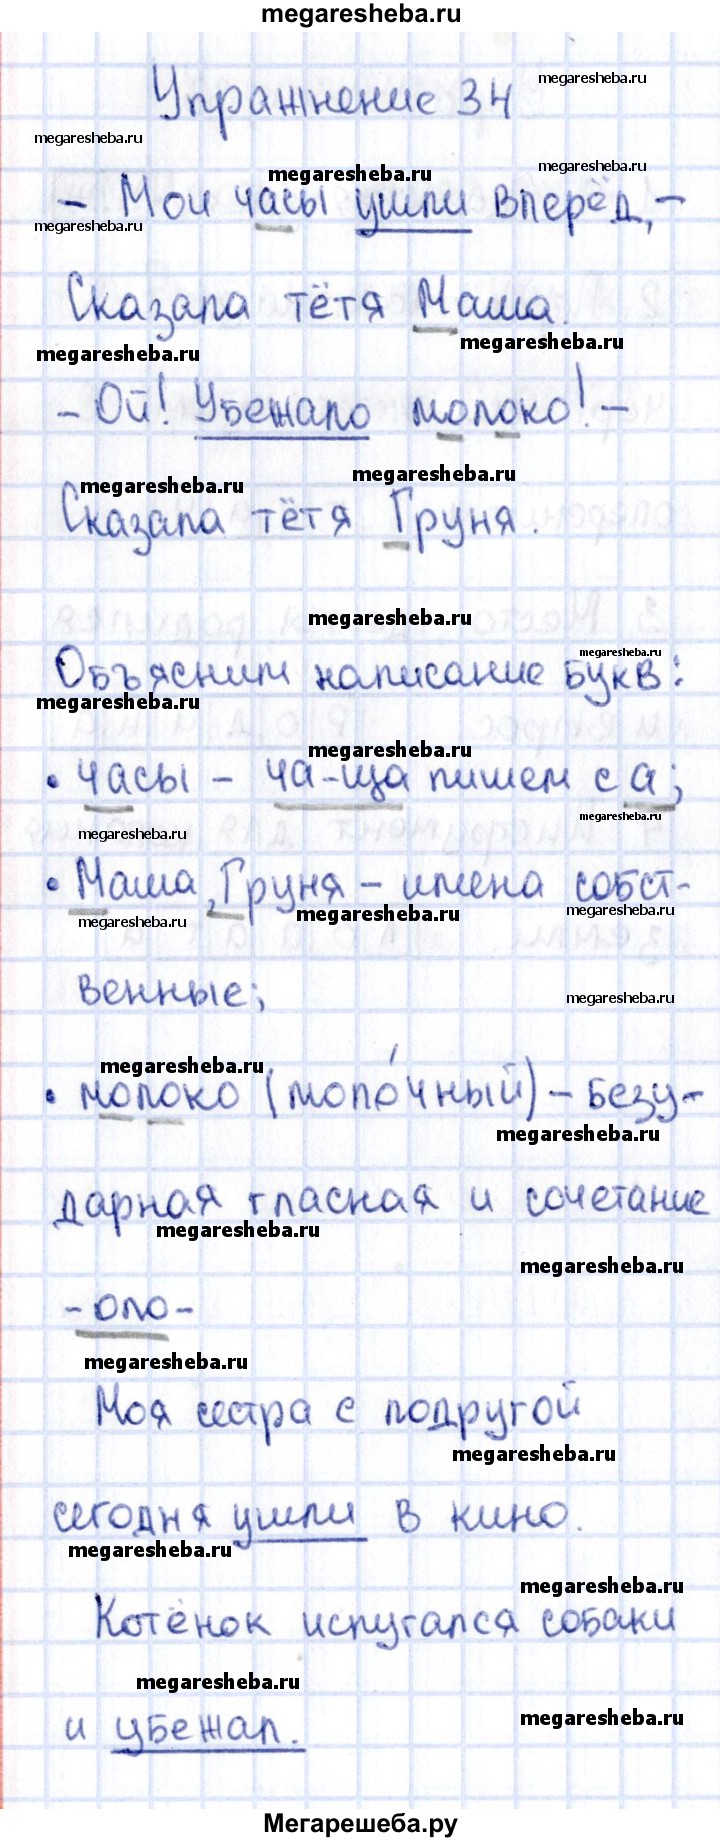 megaresheba.ru
Упражнение 34
megaresheba.ru
megaresheba.ru
megaresheba.ru
megaresheba.ru
– Мои часы ушли вперёд, –
megaresheba.ru
Сказала тётя Маша.
megaresheba.ru
megaresheba.ru
– Ой! Убежало молоко! –
megaresheba.ru
megaresheba.ru
Сказала тётя Груня.
megaresheba.ru
megaresheba.ru
Объясним написание букв:
megaresheba.ru
megaresheba.ru
• часы – ча-ща пишем с а;
megaresheba.ru
megaresheba.ru
• Маша, Груня – имена собст-
megaresheba.ru
megaresheba.ru
megaresheba.ru
венные;
megaresheba.ru
megaresheba.ru
• молоко (моло́чный) – безу-
megaresheba.ru
дарная гласная и сочетание
megaresheba.ru
megaresheba.ru
-оло-
megaresheba.ru
Моя сестра с подругой
megaresheba.ru
сегодня ушли в кино.
megaresheba.ru
megaresheba.ru
Котёнок испугался собаки
megaresheba.ru
и убежал.
megaresheba.ru
Мегарешеба.ру